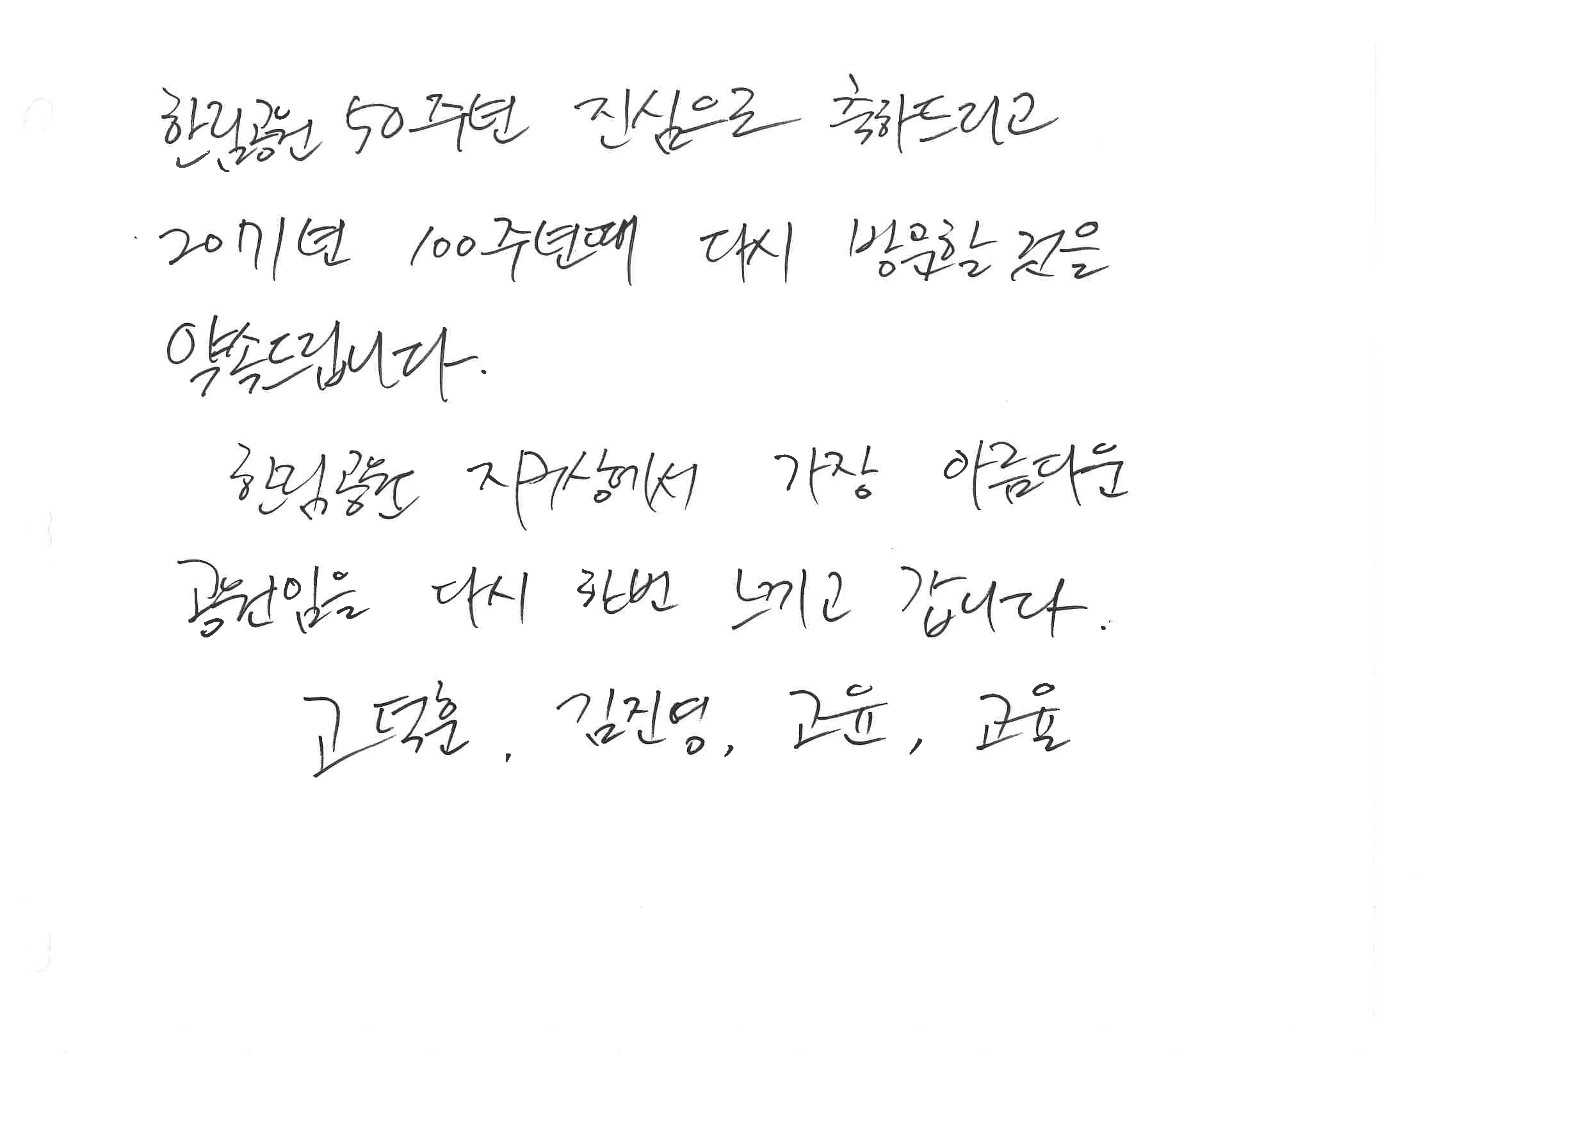 한림공원 50주년 진심으로 축하드리고
2071년 100주년때 다시 방문할 것을
약속드립니다.
한림공원 지구상에서 가장 아름다운
공원임을 다시 한번 느끼고 갑니다.
고덕훈, 김진영, 고윤, 고율